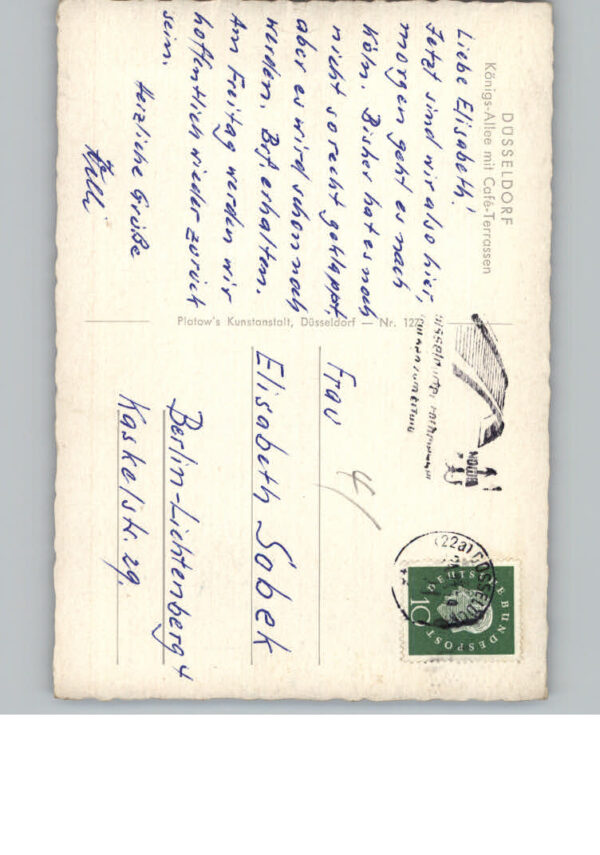 DÜSSELDORF
Königs-Allee mit Café-Terrassen
Liebe Elisabeth!
Jetzt sind wir also hier,
morgen geht es nach
Köln. Bisher hat es noch
nicht so recht geklappt,
aber es wird schon noch
werden. Brf erhalten.
Am Freitag werden wir
hoffentlich wieder zurück
sein.
Herzliche Grüße
Willi
Platow's Kunstanstalt, Düsseldorf — Nr. 127
4/
Frau
Elisabeth Sobek
Berlin-Lichtenberg 4
Kaskelstr. 29.
(22a) DÜSSELD
DEUTSCHE BUNDESPOST
10